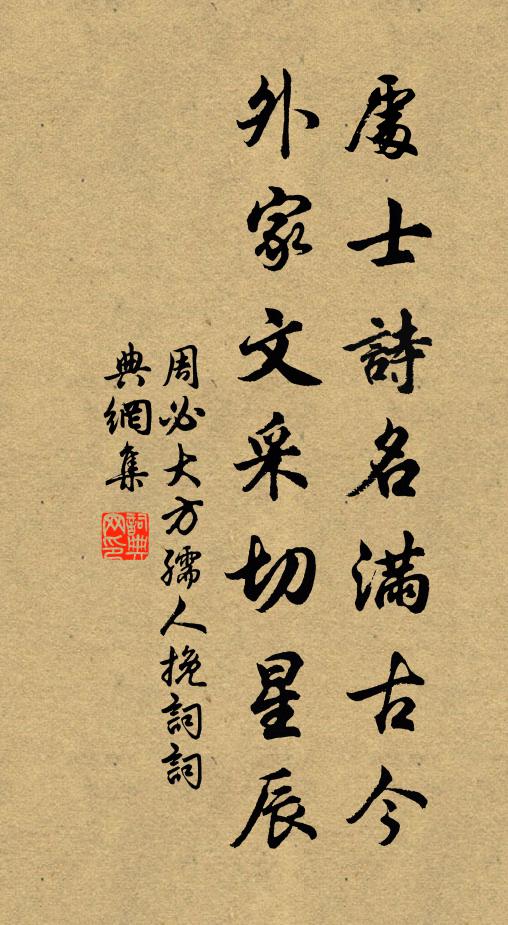 處士詩名滿古今
外家文采切星辰
周必大方孺人挽詞詞
典網集
詞典
网印